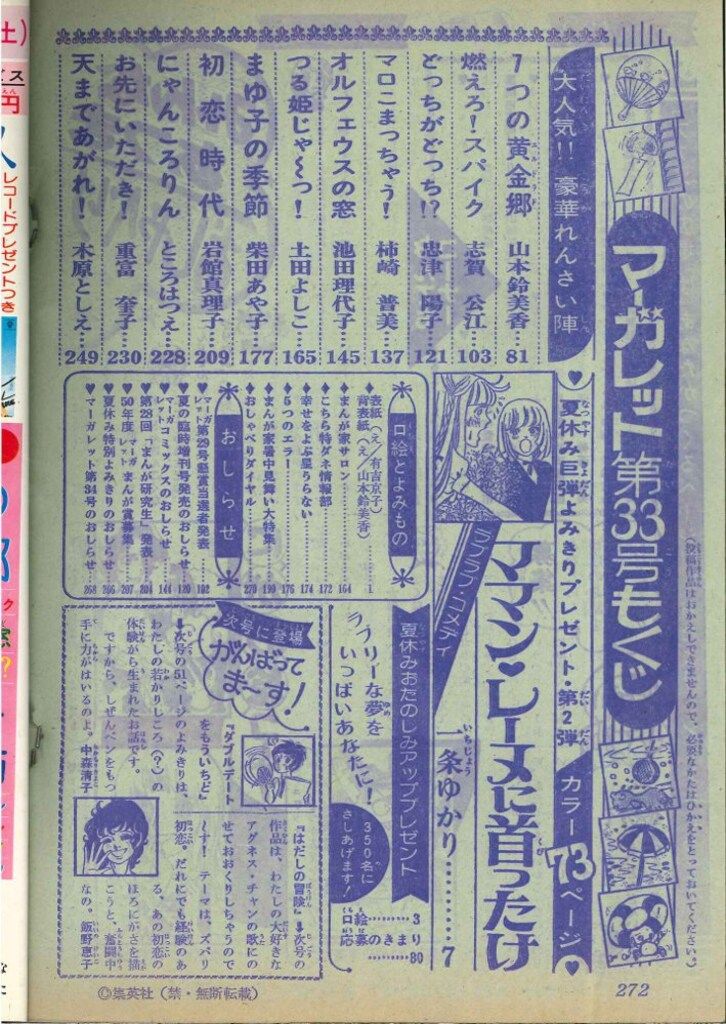 マーガレット第33号もくじ
(投稿作品はおかえしできませんので、必要なかたはひかえをとっておいてください。)
♥夏休み巨弾よみきりプレゼント・第2弾 カラー73ページ♥
ラブラブ・コメディ
ママン・レーヌに首ったけ
一条ゆかり………7
大人気!! 豪華れんさい陣
7つの黄金郷 山本鈴美香…81
燃えろ!スパイク 志賀公江…103
どっちがどっち!? 忠津陽子…121
マロこまっちゃう! 柿崎普美…137
オルフェウスの窓 池田理代子…145
つる姫じゃ〜っ! 土田よしこ…165
まゆ子の季節 柴田あや子…177
初恋時代 岩館真理子…209
にゃんころりん ところはつえ…228
お先にいただき! 重富奎子…230
天まであがれ! 木原としえ…249
口絵とよみもの
♦表紙(え/有吉京子)
背表紙(え/山本鈴美香)…1
♦まんが家サロン…164
♦こちら特ダネ情報部…172
♦幸せをよぶ星うらない…174
♦5つのエラー…175
♦まんが家暑中見舞い大特集…190
♦おしゃべりダイヤル…270
おしらせ
♥マーガレット第29号懸賞当選者発表…102
♥夏の臨時増刊号発売のおしらせ…120
♥マーガレットコミックスのおしらせ…144
♥第28回「まんが研究生」発表…204
♥50年度マーガレットまんが賞募集…207
♥夏休み特別よみきりのおしらせ…266
♥マーガレット第34号のおしらせ…268
夏休みおたのしみアッププレゼント
ラブリーな夢を
いっぱいあなたに!
350名に
さしあげます!
口絵………3
応募のきまり………80
次号に登場
がんばって
まーす!
『ダブルデート
をもういちど』
↓次号の51ページのよみきりは、
わたしの若かりしころ(?)の
体験から生まれたお話です。
ですから、しぜんペンをもつ
手に力がはいるのよ。中森清子
『はだしの冒険』↓次号の
作品は、わたしの大好きな
アグネス・チャンの歌にの
せておおくりしちゃうので
ーす!テーマは、ズバリ
初恋。だれにでも経験のあ
る、あの初恋の
ほろにがさを描
こうと、奮闘中
なの。飯野恵子
©集英社(禁・無断転載)
272
レコードプレゼントつき